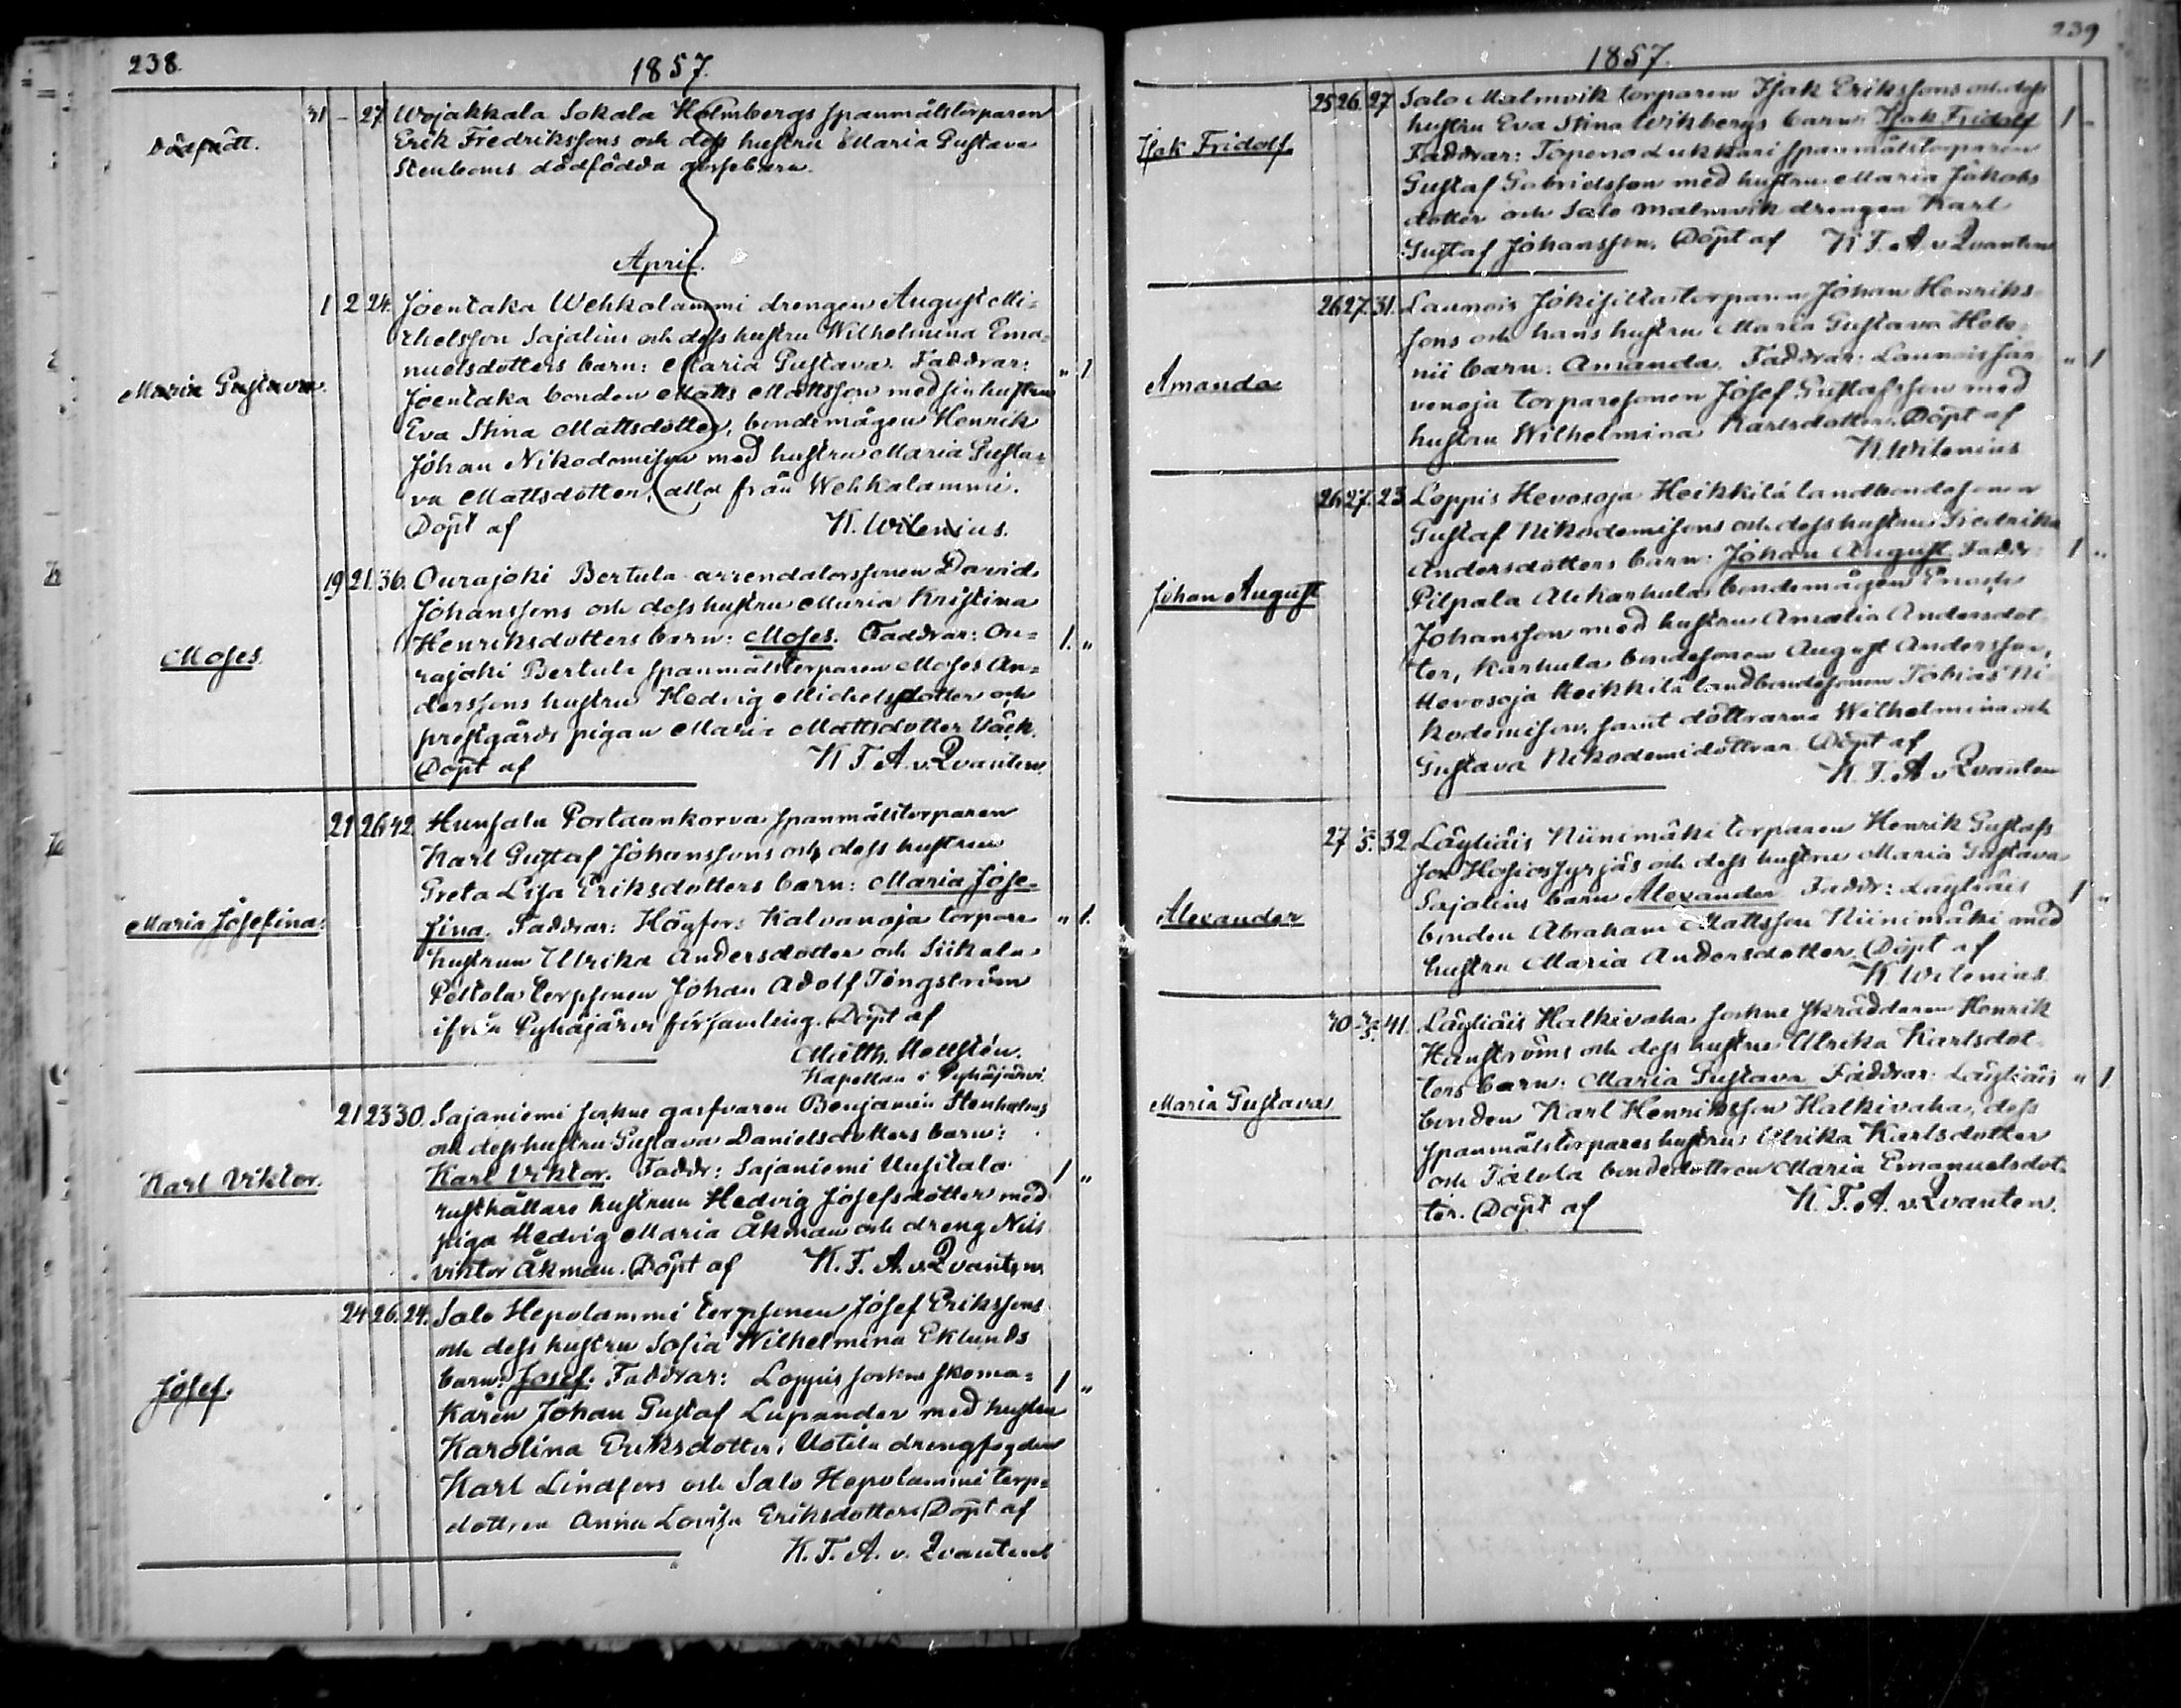 238.
1857.
Dödfödt.
31 - 27 Wojakkala Sokala Holmbergs spanmålstorparen
Erik Fredrikssons och dess hustru Maria Gustava
Stenboms dödfödda gossebarn.
April.
1 2 24. Joentaka Wehkalammi drengen August Mi-
chelsson Sajalius och dess hustru Wilhelmina Ema-
nuelsdotters barn: Maria Gustava. Faddrar: " 1
Maria Gustava.
Joentaka bonden Matts Mattsson med sin hustru
Eva Stina Mattsdotter, bondemågen Henrik
Johan Nikodemisson med hustru Maria Gusta-
va Mattsdotter, alla från Wehkalammi.
Döpt af K. Wilenius.
19 21. 36. Ourajoki Bertula arrendatorssonen David
Johanssons och dess hustru Maria Kristina
Henriksdotters barn: Moses. Faddrar: Ou- 1. "
Moses
rajoki Bertula spanmålstorparen Moses An-
derssons hustru Hedvig Michelsdotter och
prestgårds pigan Maria Mattsdotter Väck.
Döpt af K. F. A. v. Qvanten.
21 26 42 Hunsala Portaankorva spanmålstorparen
Karl Gustaf Johanssons och dess hustru
Greta Lisa Eriksdotters barn: Maria Jose-
Maria Josefina.
fina. Faddrar: Högfors Kalvanoja torpare " 1.
hustrun Ulrika Andersdotter och Siikala
Peltola torpsonen Johan Adolf Tengström
ifrån Pyhäjärvi församling. Döpt af
Matth. Hellstén.
Kapellan i Pyhäjärvi.
21 23 30. Sajaniemi sockne garfvaren Benjamin Stenholms
och dess hustru Gustava Danielsdotters barn:
Karl Viktor.
Karl Viktor. Faddr: Sajaniemi Uusitalo 1 "
rusthållare hustrun Hedvig Josefsdotter med
piga Hedvig Maria Åkman och dreng Nils
Viktor Åkman. Döpt af K. F. A. v. Qvanten.
24 26. 24. Salo Hepolammi torpsonen Josef Erikssons
och dess hustru Sofia Wilhelmina Eklunds
barn: Josef. Faddrar: Loppis sockne skoma- 1 "
Josef.
karen Johan Gustaf Lupander med hustru
Karolina Eriksdotter, Uotila drengfogden
Karl Lindfors och Salo Hepolammi torp-
dottren Anna Lovisa Eriksdotter. Döpt af
K. F. A. v. Qvanten
239
1857.
25 26. 27 Salo Malmvik torparen Isak Erikssons och dess
hustru Eva Stina Wikbergs barn: Isak Fridolf 1 -
Isak Fridolf
Faddrar: Topeno Lukkari spanmålstorparen
Gustaf Gabrielsson med hustru Maria Jakobs
dotter och Salo Malmvik drengen Karl
Gustaf Johansson. Döpt af K. F. A. v. Qvanten
26 27. 31. Launois Jokisilta torparen Johan Henriks-
sons och hans hustru Maria Gustava Hele-
nii barn: Amanda. Faddrar: Launois Jär- " 1
Amanda
venoja torparesonen Josef Gustafsson med
hustru Wilhelmina Karlsdotter. Döpt af
K. Wilenius
26 27. 23 Loppis Hevosoja Heikkilä landbondesonen
Gustaf Nikodemisons och dess hustru Fredrika
Andersdotters barn: Johan August. Faddr: 1 "
Johan August
Pilpala Alikarhula bondemågen Enoch
Johansson med hustru Amalia Andersdot-
ter, Karhula bondesonen August Andersson,
Hevosoja Heikkilä landbondesonen Tobias Ni-
kodemison, samt döttrarna Wilhelmina och
Gustava Nikodemidöttrar. Döpt af
K. F. A. v. Qvanten
27 32 Läyliäis Niinimäki torparen Henrik Gustafs
son och dess hustru Maria Gustava
Sajalius barn Alexander Faddr: Läyliäis 1 "
Alexander
bonden Abraham Mattsson Niinimäki med
hustru Maria Andersdotter. Döpt af
K. Wilenius
30 41. Läyliäis Halkivaha sockne skräddaren Henrik
Hanströms och dess hustru Ulrika Karlsdot-
ters barn: Maria Gustava Faddrar: Läyliäis " 1
Maria Gustava
bonden Karl Henriksson Halkivaha, dess
spanmålstorpares hustru Ulrika Karlsdotter
och Talola bondedottren Maria Emanuelsdot-
ter. Döpt af K. F. A. v. Qvanten.